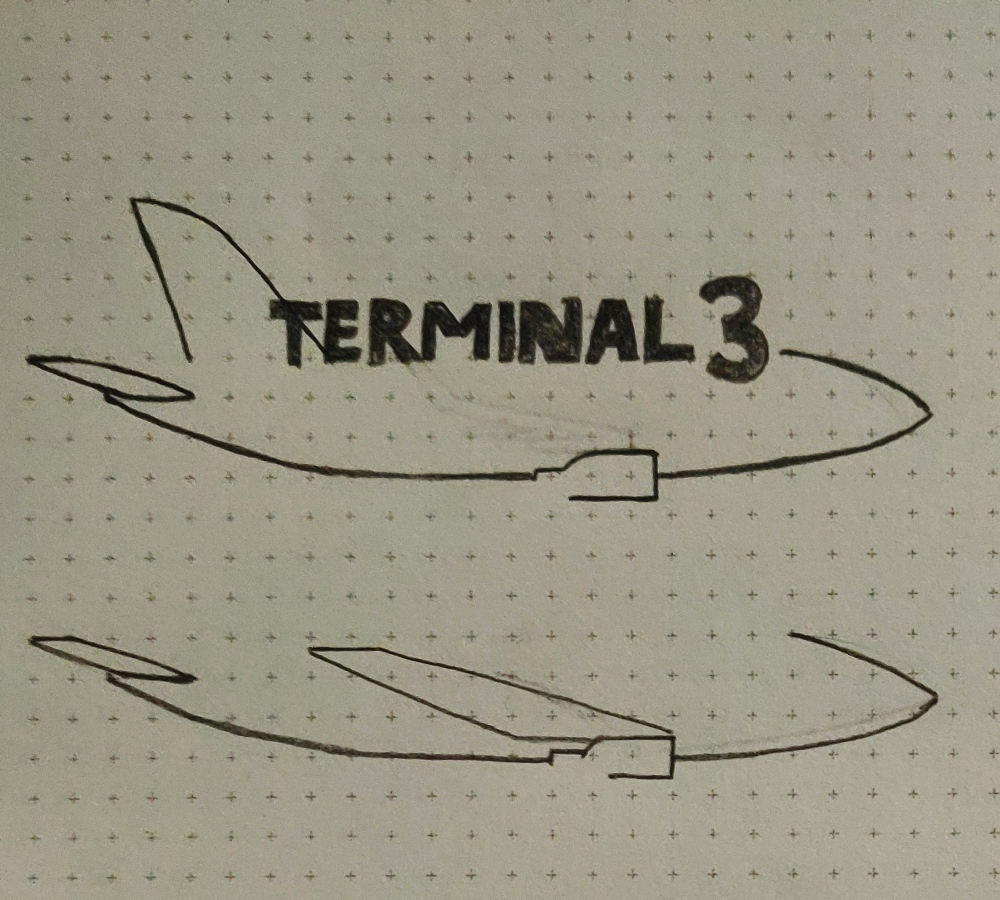 TERMINAL 3